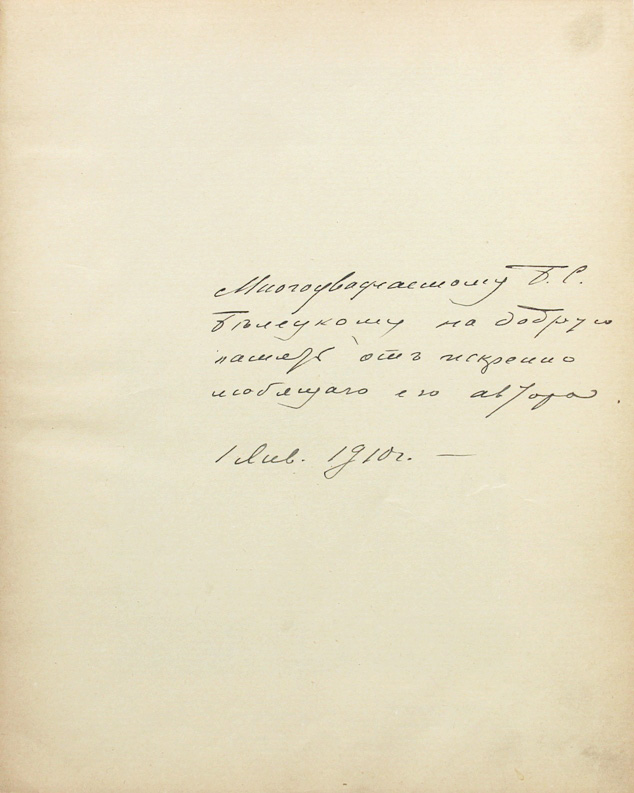 Многоуважаемому Б. С.
Бѣлецкому на добрую
память отъ искренно
любящаго его автора.
1 Янв. 1910 г. —